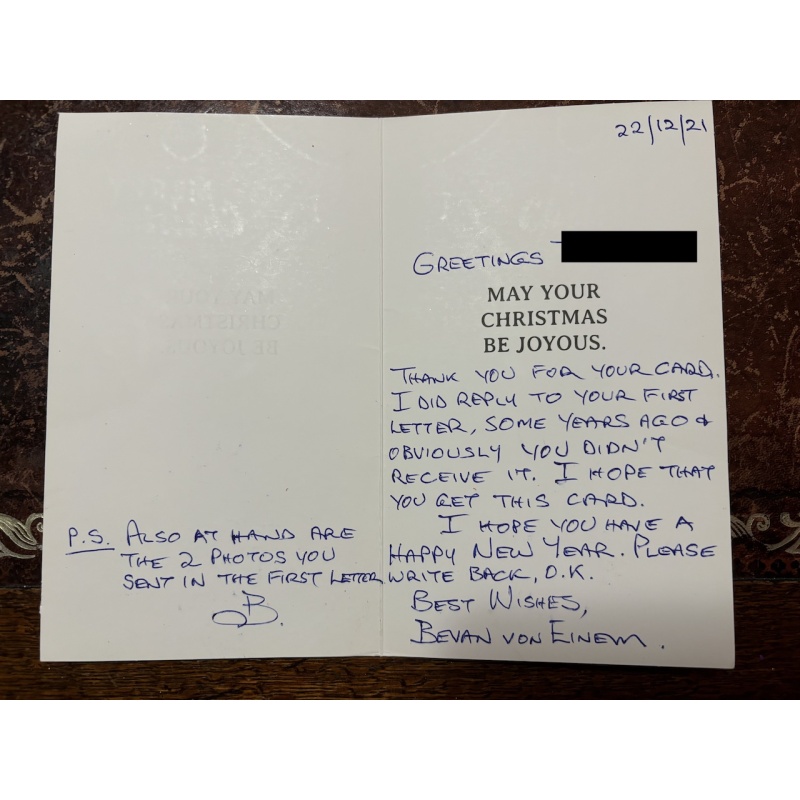 22/12/21
GREETINGS
MAY YOUR
CHRISTMAS
BE JOYOUS.
THANK YOU FOR YOUR CARD.
I DID REPLY TO YOUR FIRST
LETTER, SOME YEARS AGO &
OBVIOUSLY YOU DIDN'T
RECEIVE IT. I HOPE THAT
YOU GET THIS CARD.
I HOPE YOU HAVE A
HAPPY NEW YEAR. PLEASE
WRITE BACK, O.K.
BEST WISHES,
BEVAN VON EINEM.
P.S. ALSO AT HAND ARE
THE 2 PHOTOS YOU
SENT IN THE FIRST LETTER
B.